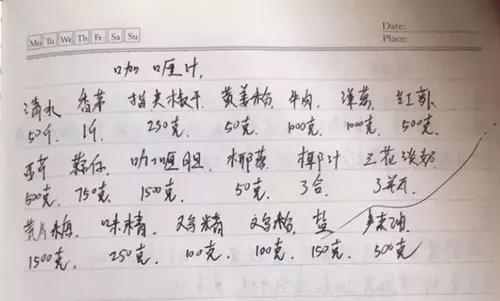 Date:
Mo Tu We Th Fr Sa Su Place:
咖喱汁.
清水 香茅 指天椒干 黄姜粉 牛肉 洋葱 红萝卜
50斤. 1斤. 250克. 50克. 1000克. 1000克. 500克.
西芹 蒜仔 咖喱胆 椰蓉 椰汁 三花淡奶
500克. 750克. 1500克. 50克. 3合. 3并瓦
黄片梅. 味精. 鸡精 鸡粉. 盐
1500克. 250克. 100克. 100克. 150克. 500克